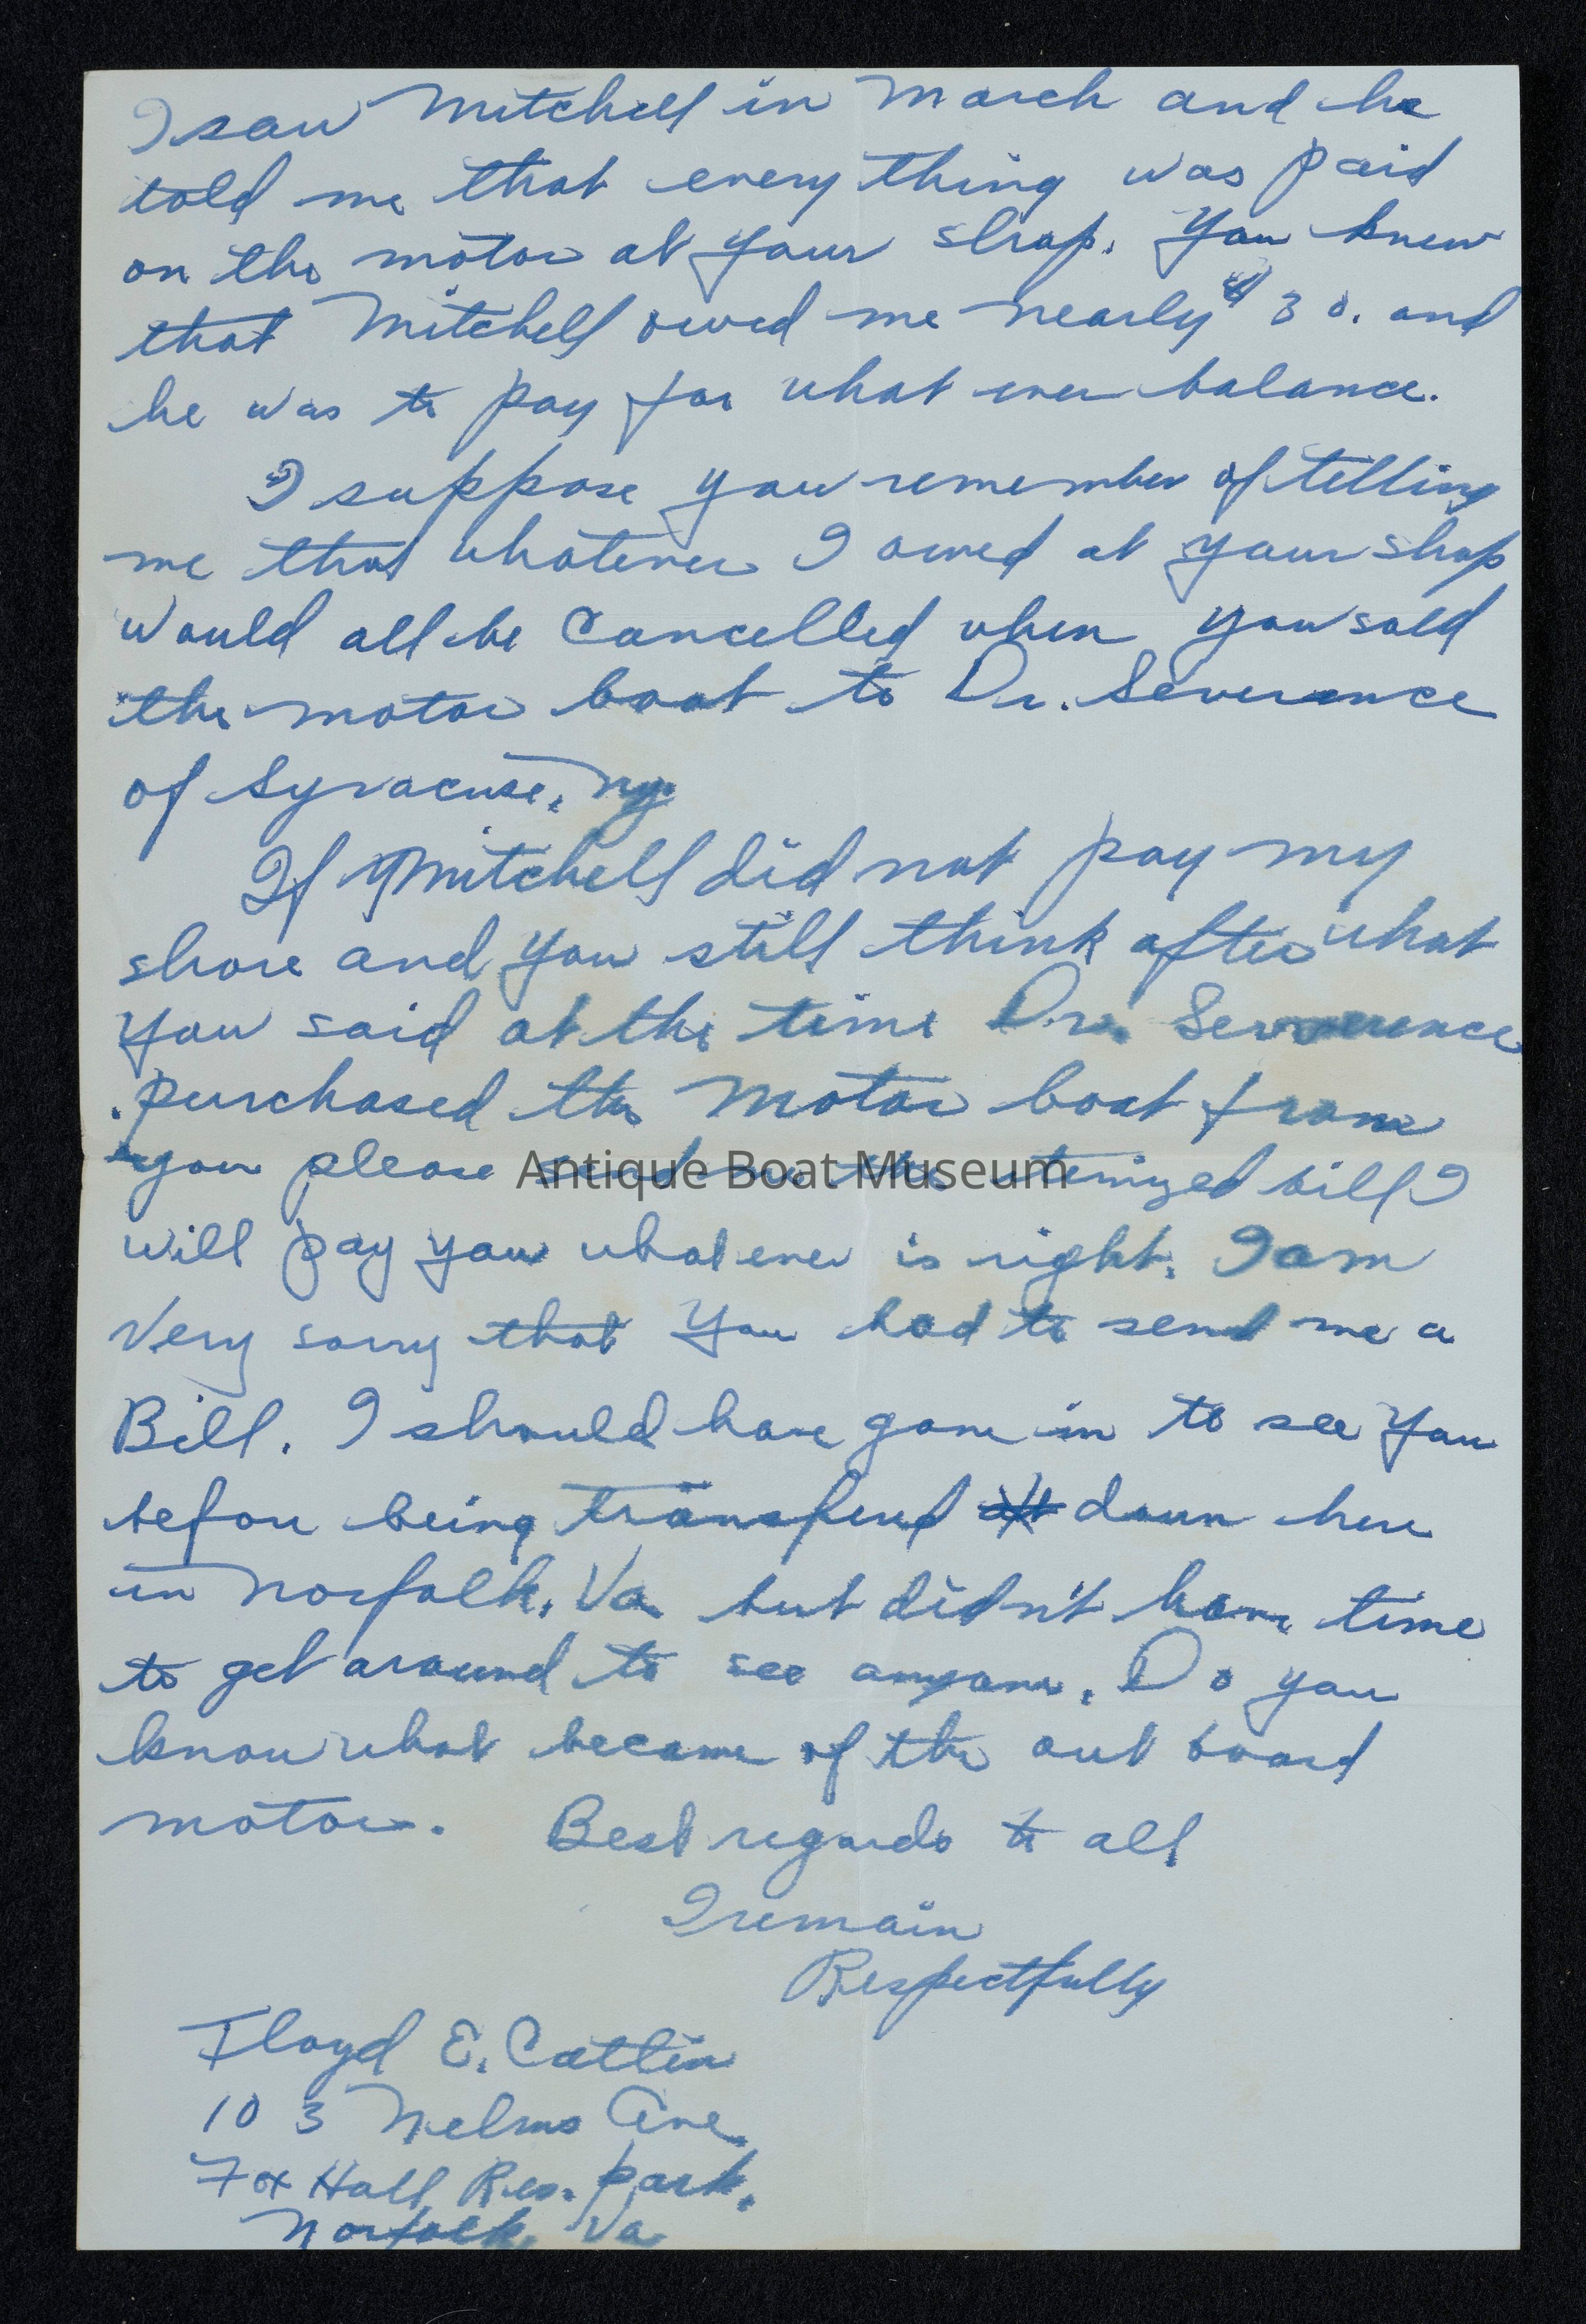 I saw Mitchell in March and he
told me that every thing was paid
on the motor at your shop. You knew
that Mitchell owed me nearly $30. and
he was to pay for what ever balance.
I suppose you remember of telling
me that whatever I owed at your shop
would all be cancelled when you sold
the motor boat to Dr. Severence
of Syracuse, Ny.
If Mitchell did not pay my
share and you still think after what
you said at the time Dr. Severence
purchased the motor boat from
you please send me the itemized bill I
will pay you whatever is right. I am
very sorry that you had to send me a
Bill. I should have gone in to see you
before being transfered down here
in Norfolk, Va. but didn't have time
to get around to see anyone. Do you
know what became of the out board
motor. Best regards to all
I remain
Respectfully
Floyd E. Catlin
103 Nelms Ave.
Fox Hall Res. Park.
Norfolk, Va.
Antique Boat Museum